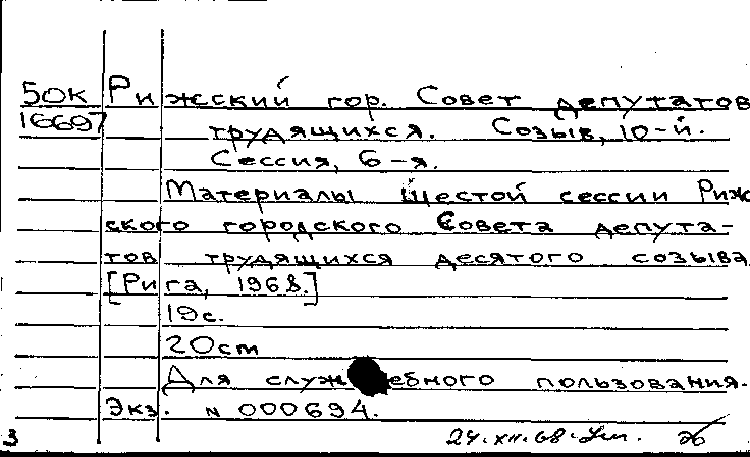 50К Рижский гор. Совет депутатов
16697 трудящихся. Созыв, 10-й.
Сессия, 6-я.
Материалы шестой сессии Риж
ского городского Совета депута-
тов трудящихся десятого созыва
[Рига, 1968.]
19с.
20cm
Для служебного пользования.
Экз. N 000694.
3 24.XII.68.